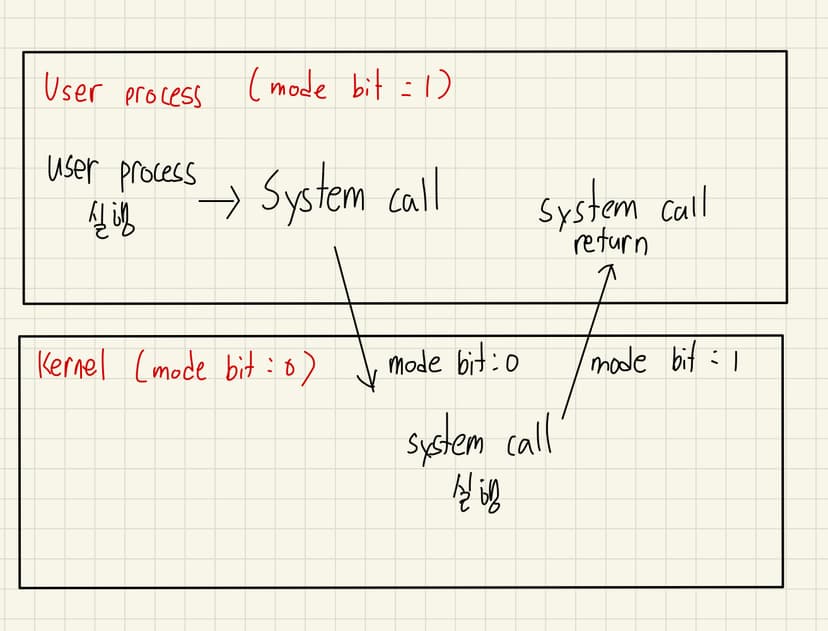 User process (mode bit = 1)
user process
실행
→ System call
system call
return
Kernel (mode bit : 0)
mode bit : 0
mode bit : 1
system call
실행